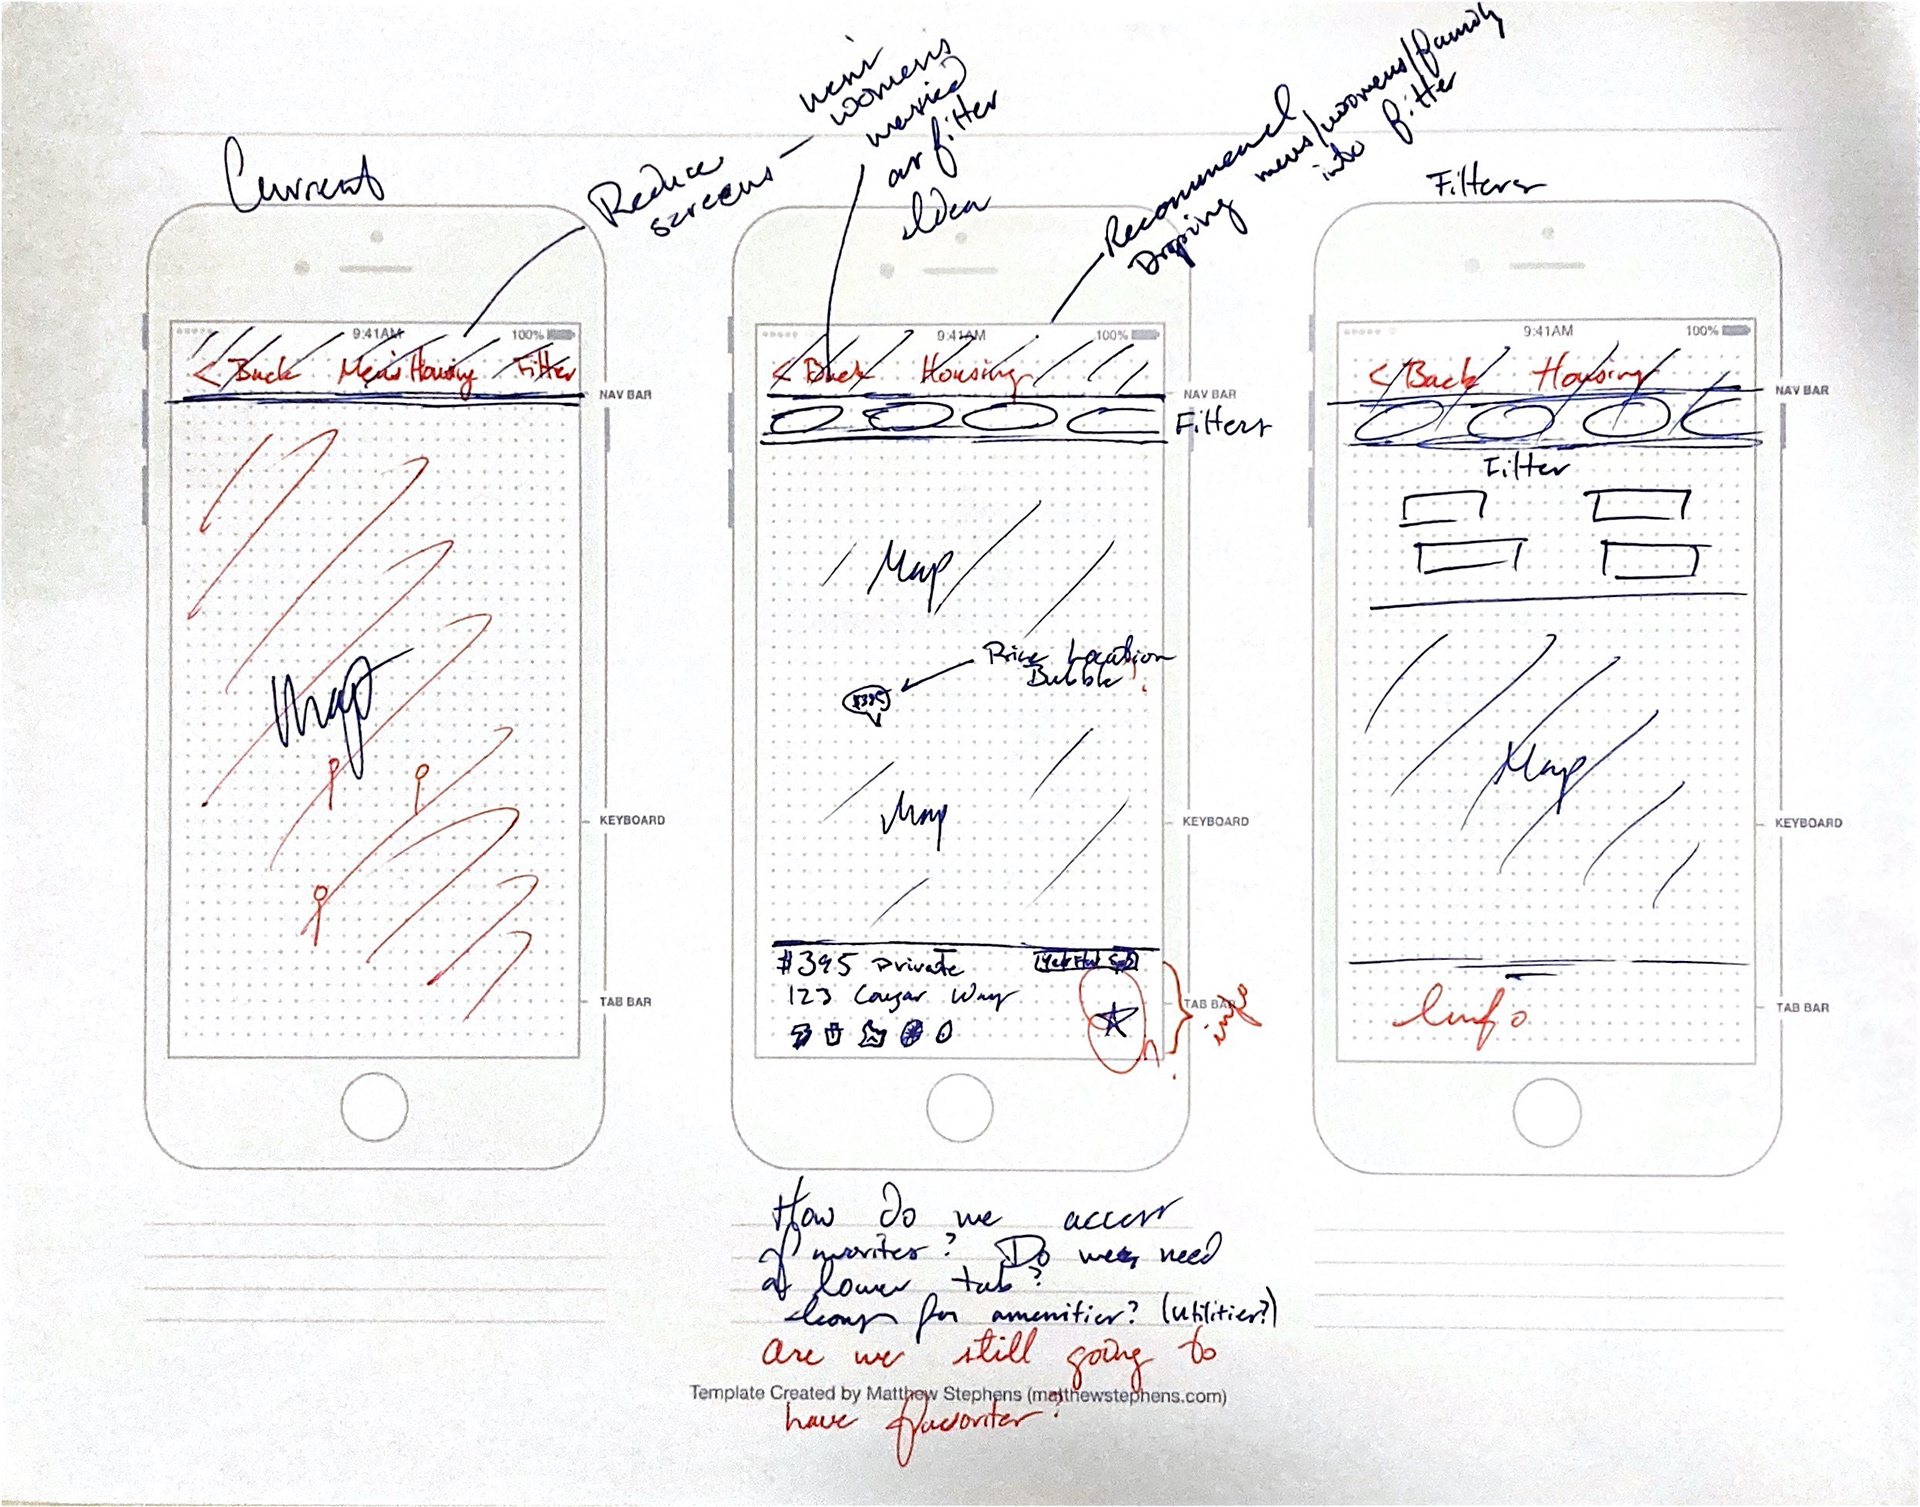 Current
Reduce
screens
men's
womens
married
as filter
Idea
Recommend
Droping mens/womens/family
into filter
Filters
9:41AM 100%
< Back Men's Housing Filter
NAV BAR
Map
KEYBOARD
TAB BAR
9:41AM 100%
< Back Housing
NAV BAR
Filters
Map
Price Location
Bubble
$395
Map
KEYBOARD
$395 Private
123 Cougar Way
TAB BAR
info
9:41AM 100%
< Back Housing
NAV BAR
Filter
Map
KEYBOARD
Info
TAB BAR
How do we access
favorites? Do we need
a lower tab?
Icons for amenities? (utilities?)
are we still going to
Template Created by Matthew Stephens (matthewstephens.com)
have favorites?